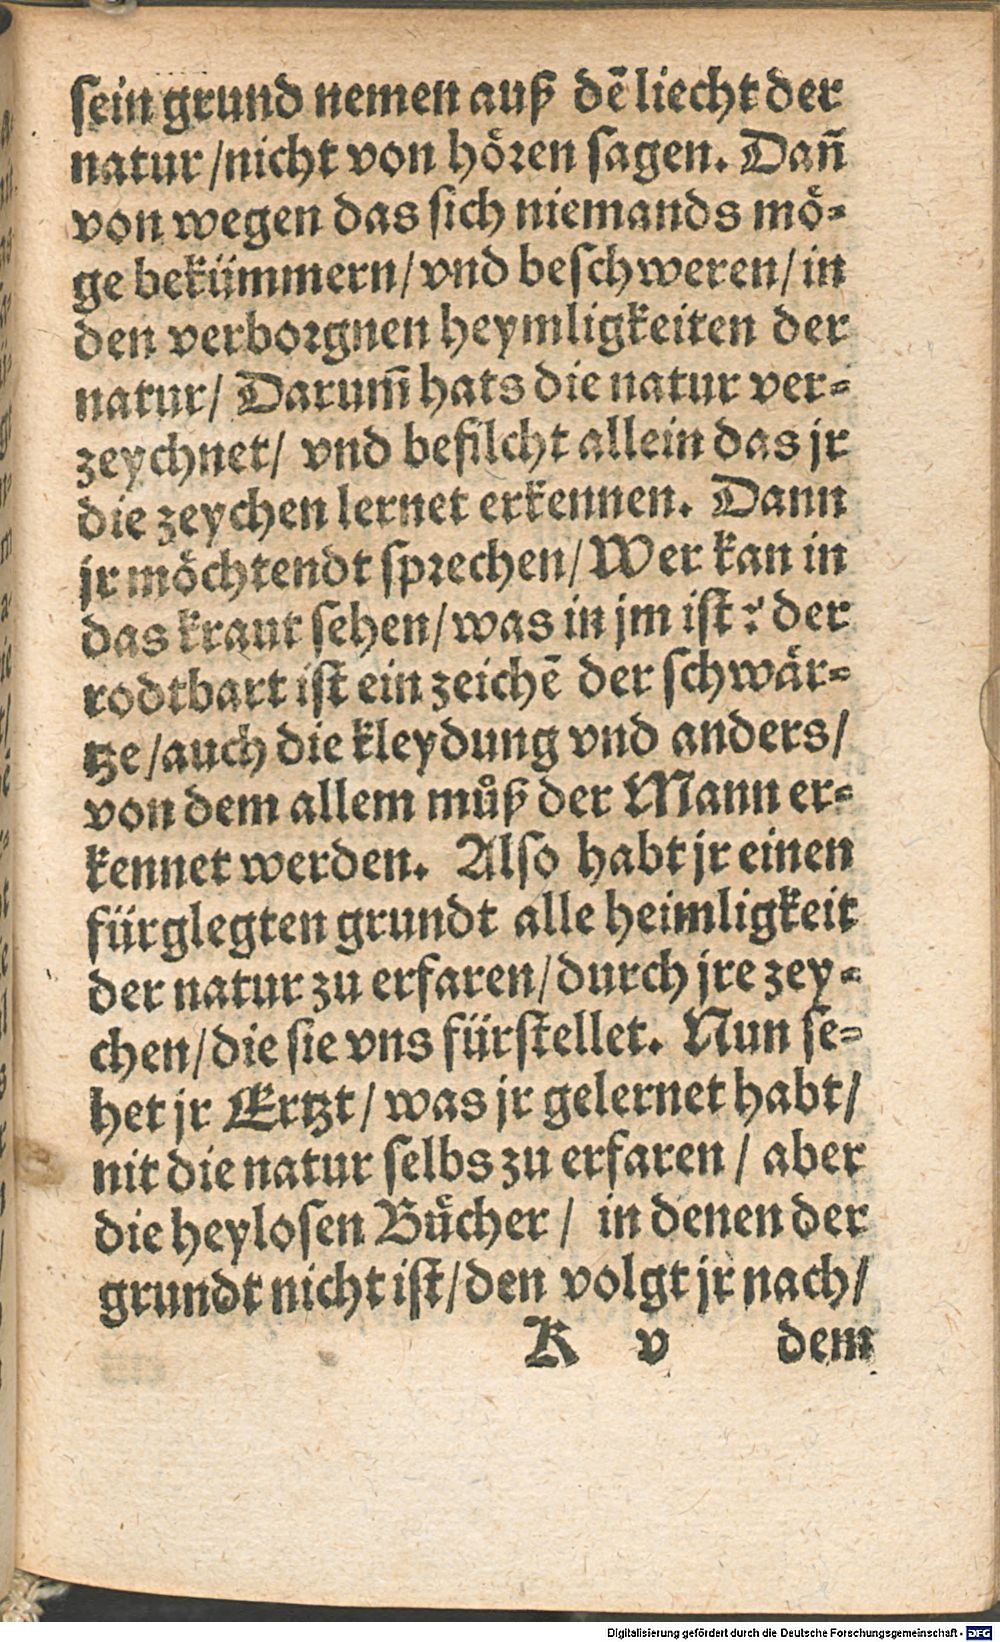 sein grund nemen auß dē liecht der
natur / nicht von hören sagen. Dañ
von wegen das sich niemands mö-
ge bekümmern / vnd beschweren / in
den verborgnen heymligkeiten der
natur / Darum̄ hats die natur ver-
zeychnet / vnd befilcht allein das jr
die zeychen lernet erkennen. Dann
jr möchtendt sprechen / Wer kan in
das kraut sehen / was in jm ist? der
rodtbart ist ein zeichē der schwär-
tze / auch die kleydung vnd anders /
von dem allem můß der Mann er-
kennet werden. Also habt jr einen
fürglegten grundt alle heimligkeit
der natur zu erfaren / durch jre zey-
chen / die sie vns fürstellet. Nun se-
het jr Ertzt / was jr gelernet habt /
nit die natur selbs zu erfaren / aber
die heylosen Bücher / in denen der
grundt nicht ist / den volgt jr nach /
K v dem
Digitalisierung gefördert durch die Deutsche Forschungsgemeinschaft - DFG